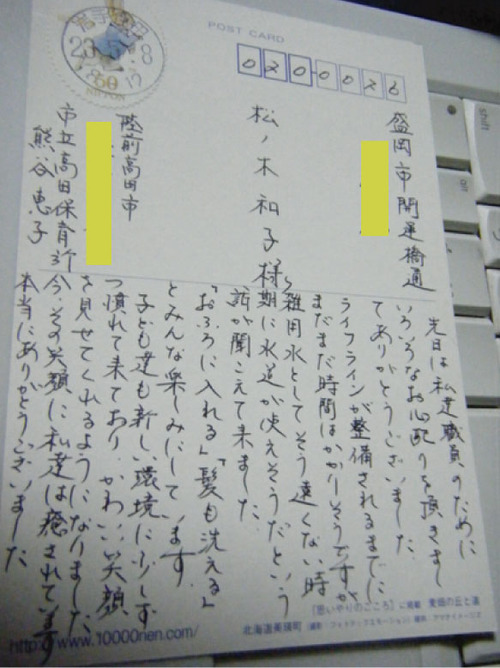 POST CARD
020 0026
盛岡市開運橋通
松ノ木和子様
陸前高田市
市立高田保育所
熊谷恵子
先日は私達職員のために
いろいろなお心配りを頂きまし
てありがとうございました。
ライフラインが整備されるまでに
まだまだ時間はかかりそうですが
雑用水としてそう遠くない時
期に水道が使えそうだという
話が聞こえて来ました。
「おふろに入れる」「髪も洗える」
とみんな楽しみにしています。
子ども達も新しい環境に少しず
つ慣れて来ており、かわいい笑顔
を見せてくれるようになりました。
今、その笑顔に私達は癒されています
本当にありがとうございました
「思いやりのこころ」に掲載 麦畑の丘と道
北海道美瑛町
http://www.10000nen.com/